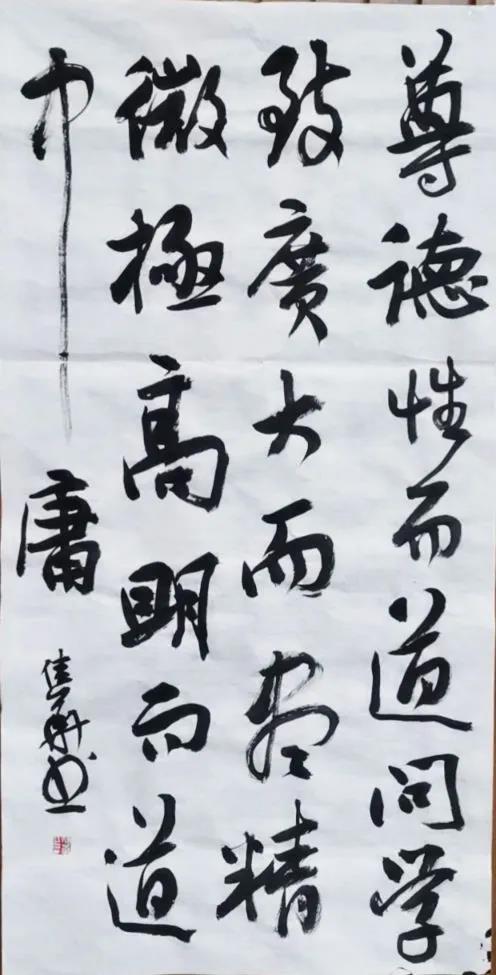 尊德性而道问学
致廣大而尽精
微極高明而道
中庸
佳舜书